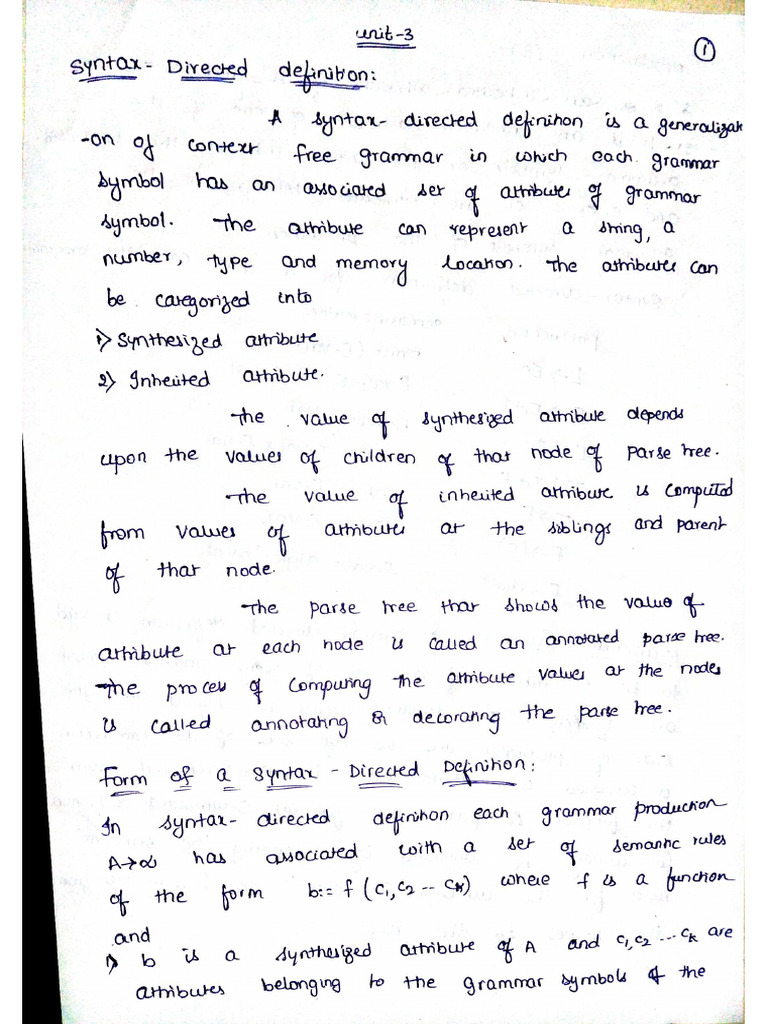 unit-3
1
Syntax - Directed definition:
A syntax-directed definition is a generalizati
-on of context free grammar in which each grammar
symbol has an associated set of attributes of grammar
symbol. The attribute can represent a string, a
number, type and memory location. The attributes can
be categorized into
1) Synthesized attribute
2) Inherited attribute.
The value of synthesized attribute depends
upon the values of children of that node of parse tree.
The value of inherited attribute is computed
from values of attributes at the siblings and parent
of that node.
The parse tree that shows the value of
attribute at each node is called an annotated parse tree.
The process of computing the attribute values at the nodes
is called annotating or decorating the parse tree.
Form of a Syntax - Directed Definition:
In syntax-directed definition each grammar production
A→α has associated with a set of semantic rules
of the form b:= f (c1, c2 -- ck) where f is a function
and
1) b is a synthesized attribute of A and c1, c2 --- ck are
attributes belonging to the grammar symbols of the